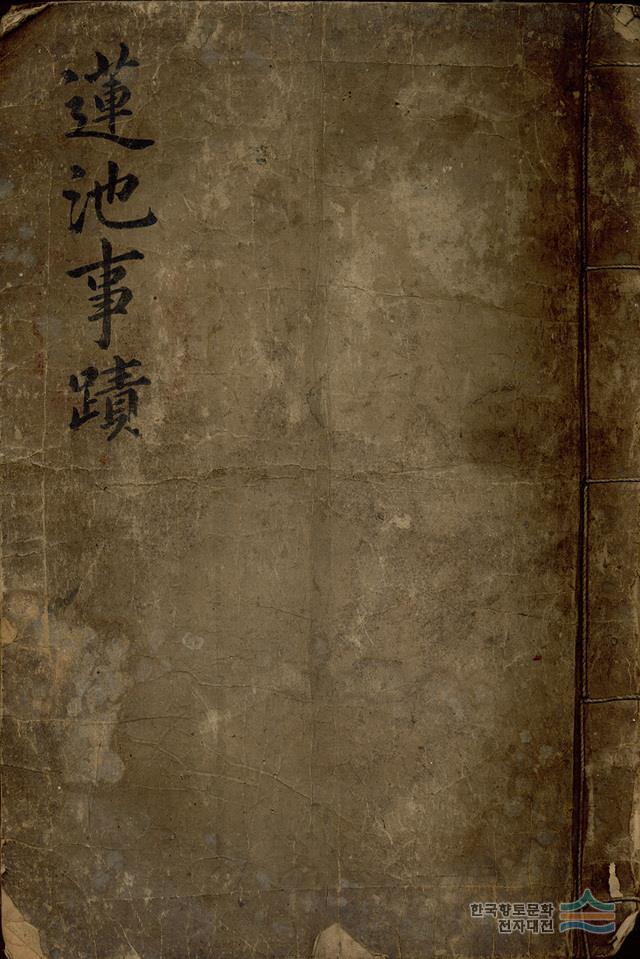 蓮池事蹟
한국향토문화
전자대전